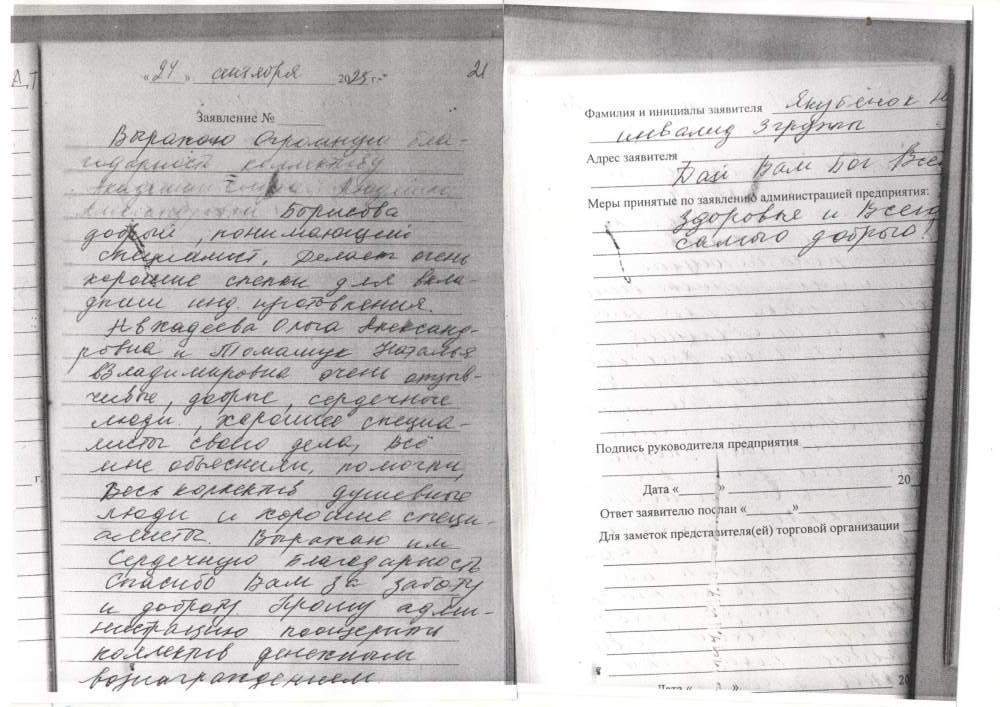 А.Т
«24» сентября 2025 г. 21
Заявление №
Выражаю Огромную бла-
годарность коллективу
Борисова
добрый, понимающий
специалист, Делает очень
хорошие слепки для вкла-
дыши инд. изготовления.
Ольга Александ-
ровна и Томащук Наталья
Владимировна очень отзыв-
чивые, добрые, сердечные
люди, хорошие специа-
листы своего дела, Всё
мне объяснили, помогли,
Весь коллектив душевные
люди и хорошие специ-
алисты. Выражаю им
Сердечную Благодарность
Спасибо Вам за заботу
и доброту Прошу адми-
нистрацию поощерить
коллектив денежным
вознаграждением
г.
Фамилия и инициалы заявителя Якубёнок Н
инвалид 3 группы
Адрес заявителя
Дай Вам Бог Все
Меры принятые по заявлению администрацией предприятия:
Здоровье и Всего
самого доброго!
Подпись руководителя предприятия
Дата «      » 20
Ответ заявителю послан «      »
Для заметок представителя(ей) торговой организации
Дата «      » 20